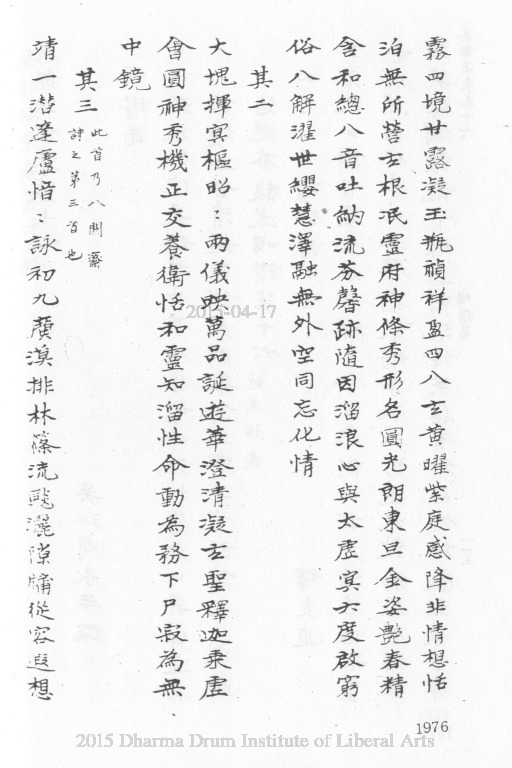 霧四境甘露凝玉瓶禎祥盈四八玄黃曜紫庭感降非情想恬
泊無所營玄根泯靈府神條秀形名圓光朗東旦金姿艷春精
含和總八音吐納流芬馨跡隨因溜浪心與太虛冥六度啟窮
俗八解濯世纓慧澤融無外空同忘化情
其二
大塊揮冥樞昭〻兩儀映萬品誕遊華澄清凝玄聖釋迦乘虛
會圓神秀機正交養衛恬和靈知溜性命動為務下尸寂為無
中鏡
其三 此首乃八關齋
詩之第三首也
靖一潛蓬廬愔〻詠初九廣漠排林篠流飈灑隙牖從容遐想
1976
2015-04-17
2015 Dharma Drum Institute of Liberal Arts